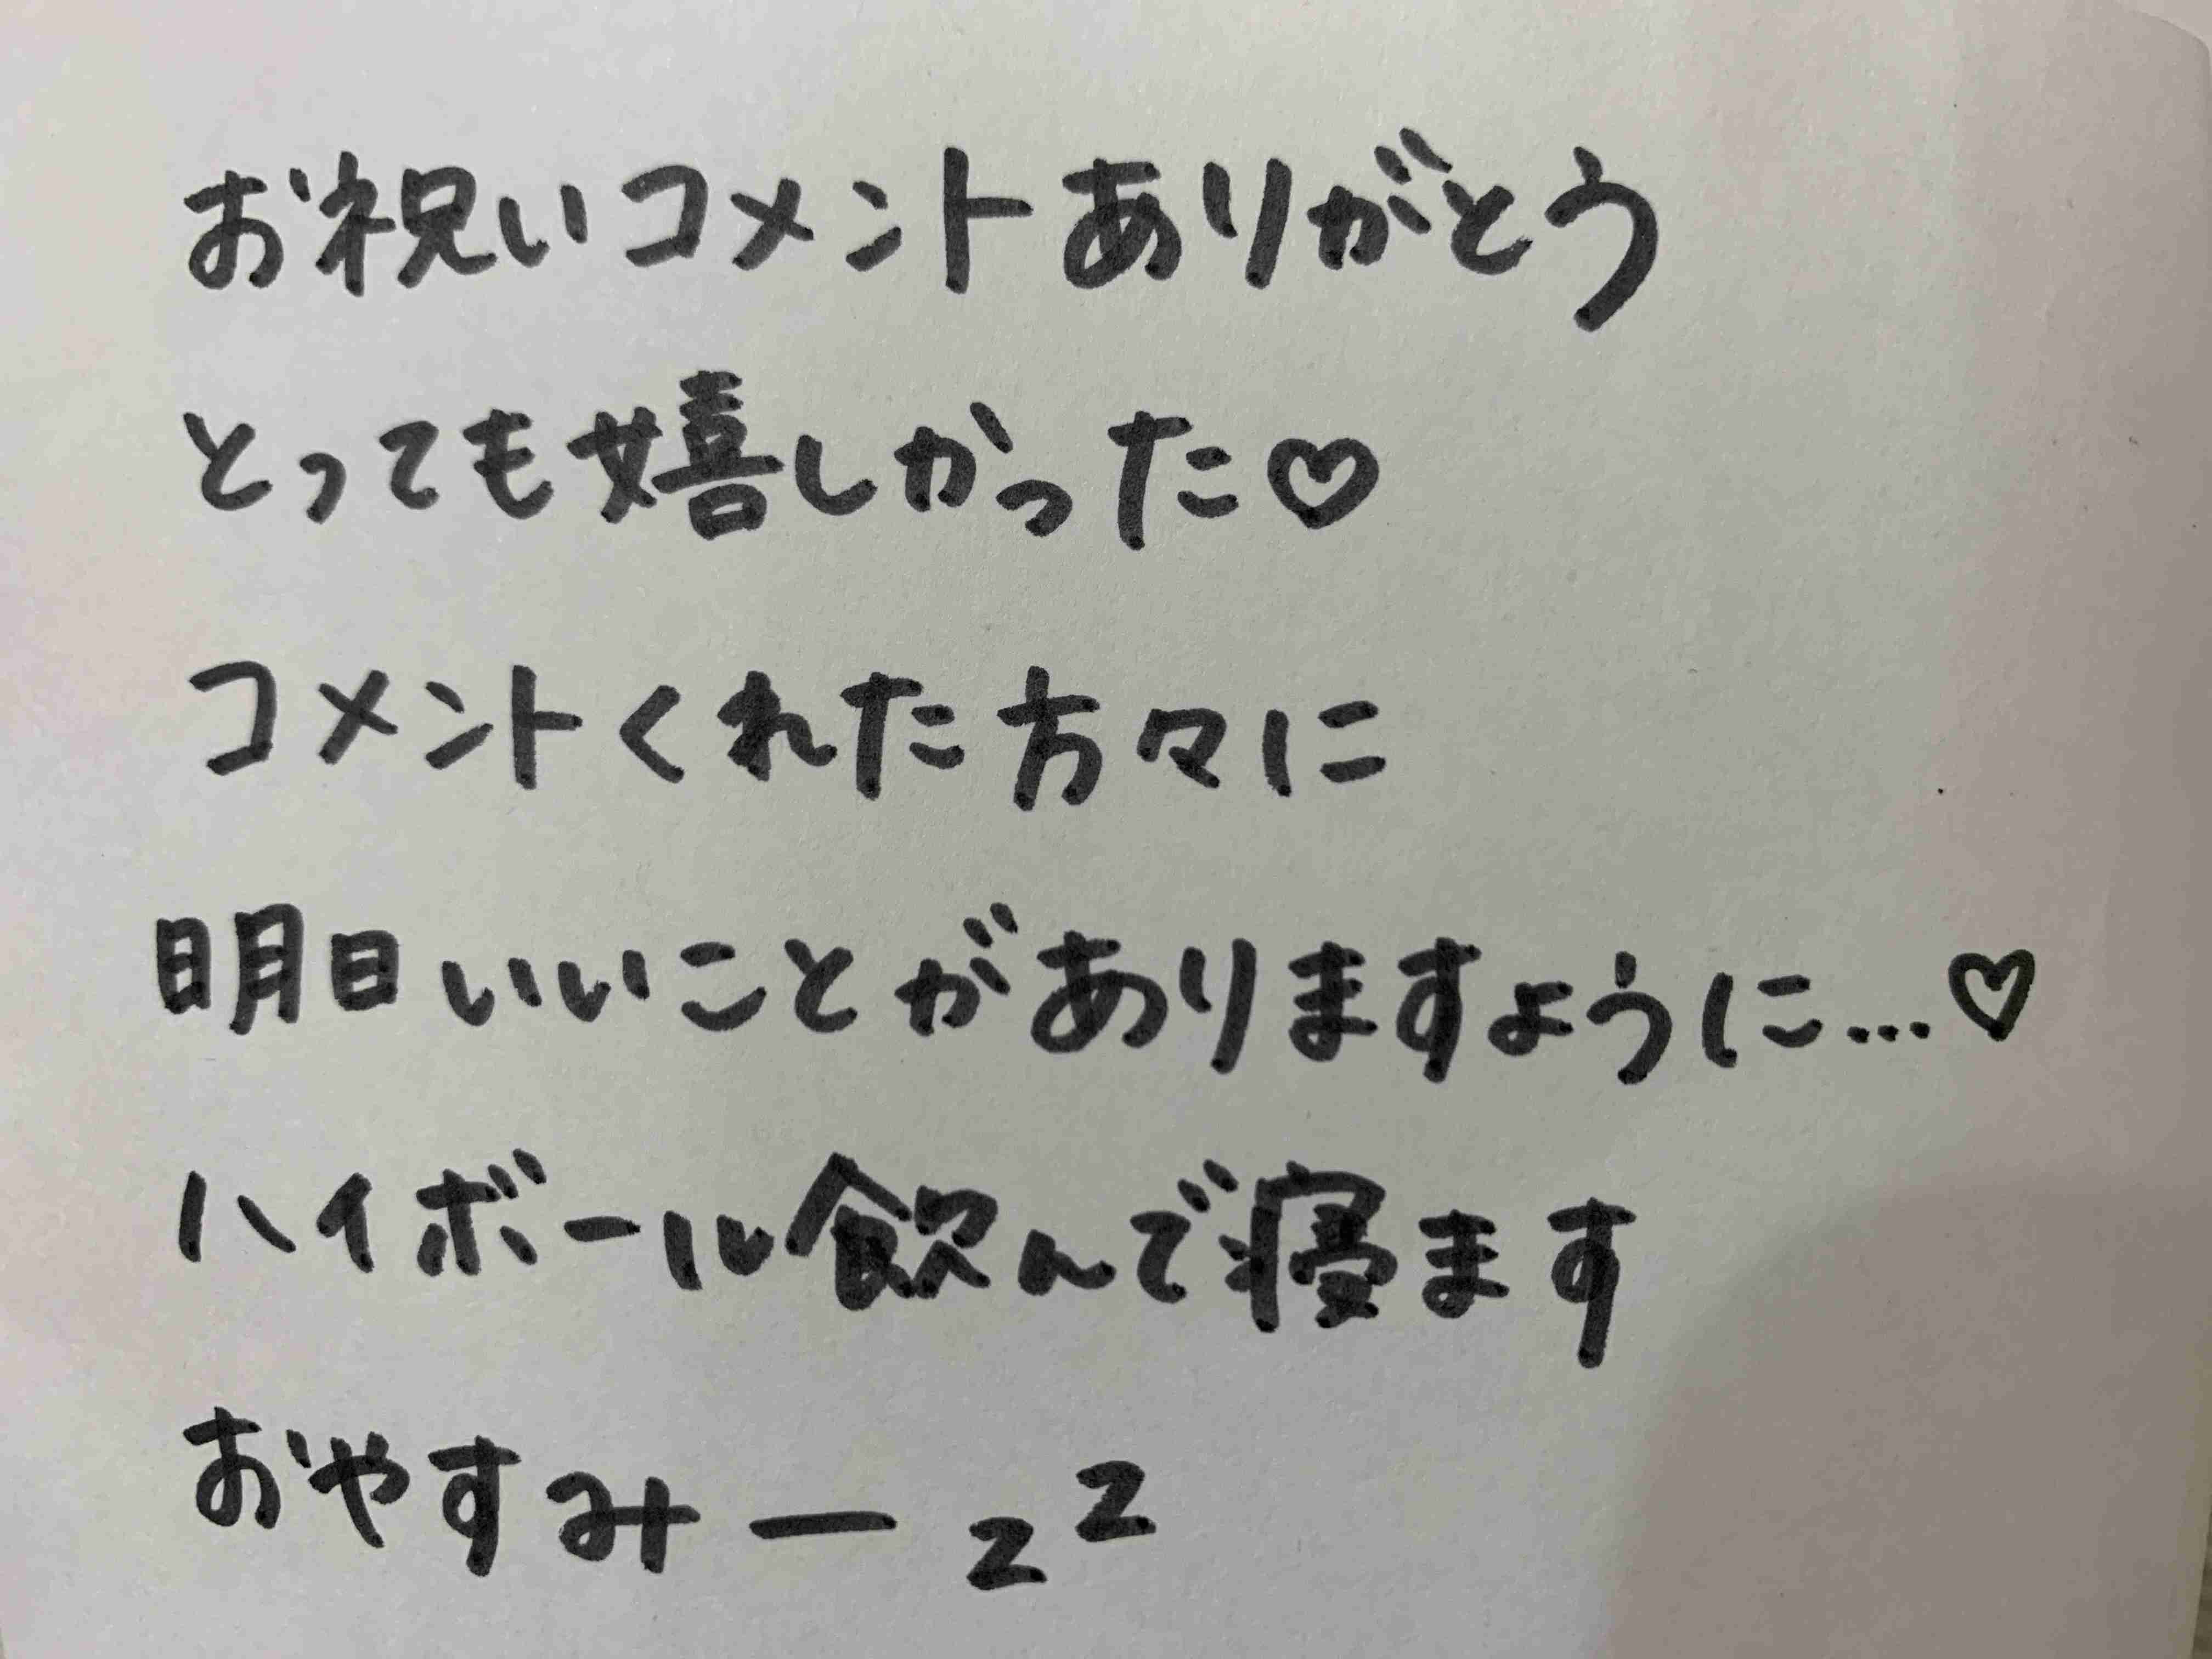 お祝いコメントありがとう
とっても嬉しかった♡
コメントくれた方々に
明日いいことがありますように…♡
ハイボール飲んで寝ます
おやすみーzz